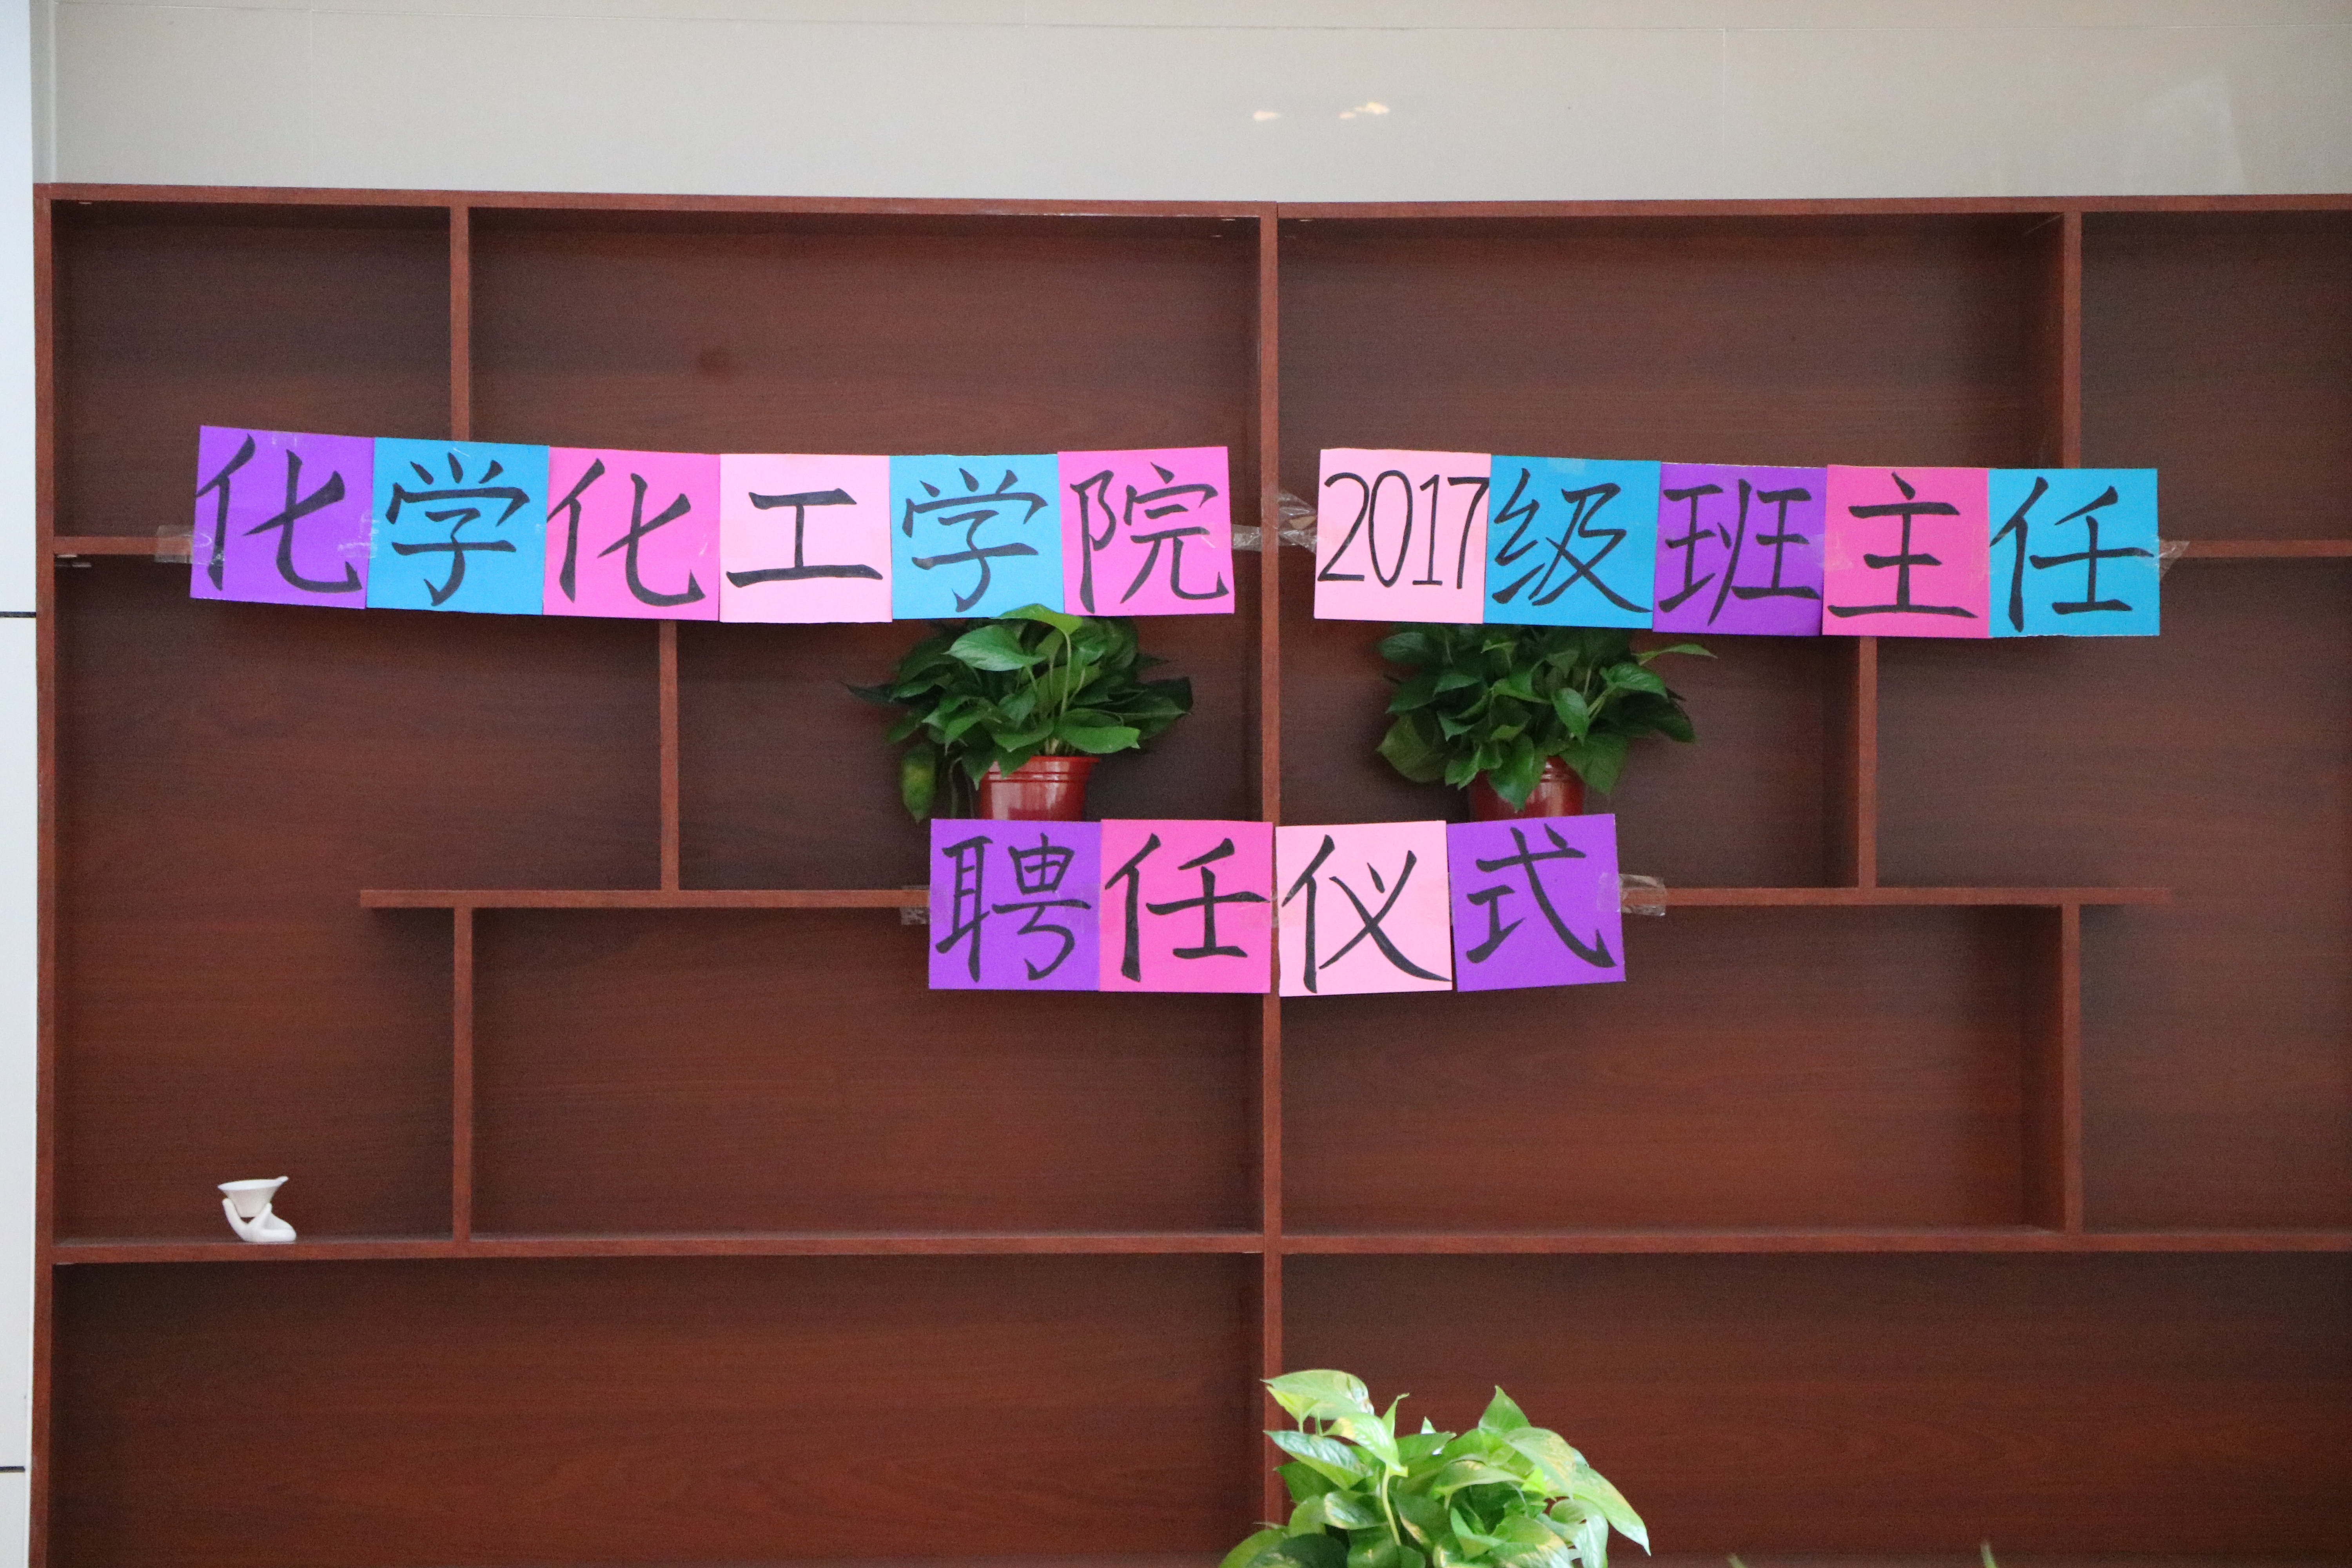 化学化工学院 2017级班主任
聘任仪式